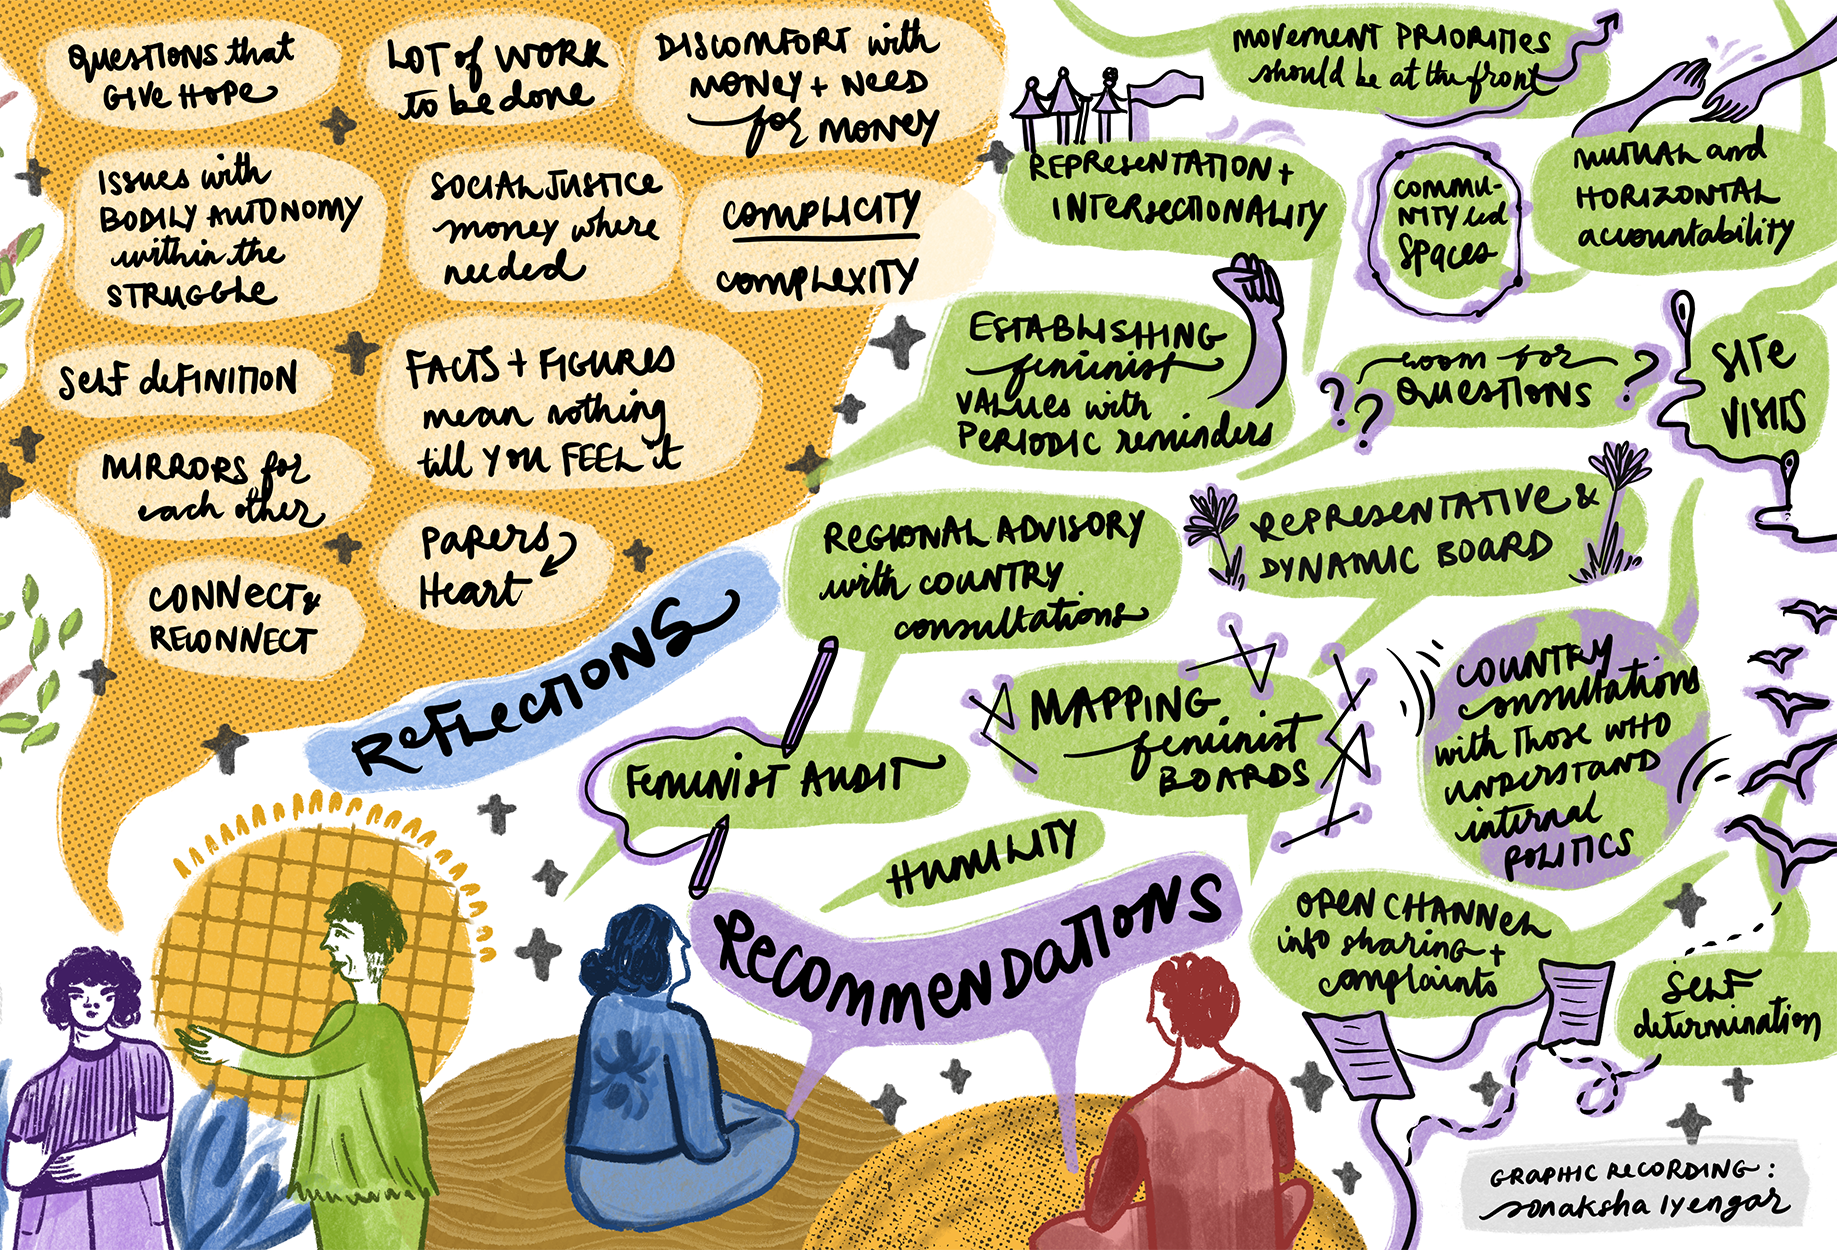 QUESTIONS that
GIVE HOPE
LOT of WORK
to be done
DISCOMFORT with
MONEY + NEED
for MONEY
ISSUES with
BODILY AUTONOMY
within the
STRUGGLE
SOCIAL JUSTICE
money where
needed
COMPLICITY
COMPLEXITY
SELF DEFINITION
FACTS + FIGURES
mean nothing
till YOU FEEL it
MIRRORS for
each other
PAPERS
HEART
CONNECT &
RECONNECT
REFLECTIONS
MOVEMENT PRIORITIES
should be at the front
REPRESENTATION +
INTERSECTIONALITY
COMMU-
NITY led
SPACES
MUTUAL and
HORIZONTAL
accountability
ESTABLISHING
feminist
VALUES with
PERIODIC reminders
room for
QUESTIONS
? ? ?
SITE
VISITS
REGIONAL ADVISORY
with COUNTRY
consultations
REPRESENTATIVE &
DYNAMIC BOARD
FEMINIST AUDIT
MAPPING
feminist
BOARDS
COUNTRY
consultations
with THOSE WHO
UNDERSTAND
internal
POLITICS
HUMILITY
RECOMMENDATIONS
OPEN CHANNEL
info sharing +
complaints
SELF
determination
GRAPHIC RECORDING:
sonaksha iyengar